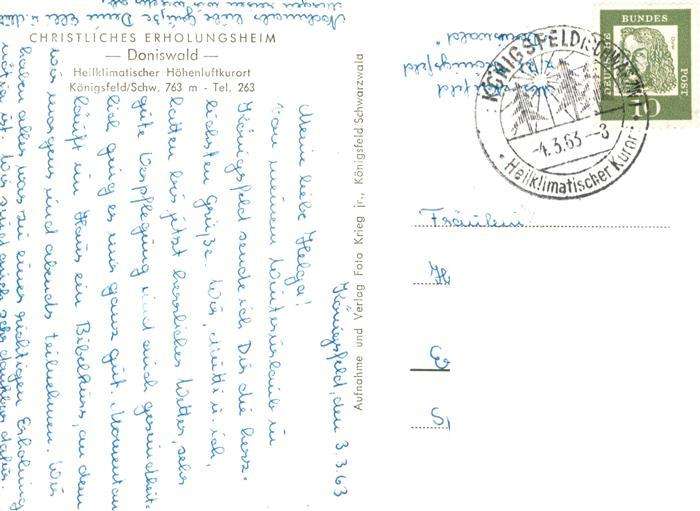 CHRISTLICHES ERHOLUNGSHEIM
— Doniswald —
Heilklimatischer Höhenluftkurort
Königsfeld/Schw. 763 m - Tel. 263
Aufnahme und Verlag Foto Krieg jr., Königsfeld Schwarzwald
Königsfeld, den 3.3.63
Meine liebe Helga!
Von meinem Winterurlaub in
Königsfeld sende ich Dir die herz-
lichsten Grüße. Wir, Mutti u. ich,
hatten bis jetzt herrliches Wetter, sehr
gute Verpflegung und auch gesundheit-
lich ging es uns ganz gut. Momentan
läuft im Haus ein Bibelkurs, an dem
wir morgens und abends teilnehmen. Wir
haben alles was zu einer richtigen Erholung
ist. Wir sind auch sehr dankbar dafür.
Nochmals liebe Grüße Deine
BUNDES
POST
DEUTSCHE
10
KÖNIGSFELD
-4.3.63--8
Heilklimatischer Kurort
Fräulein
H
E
S